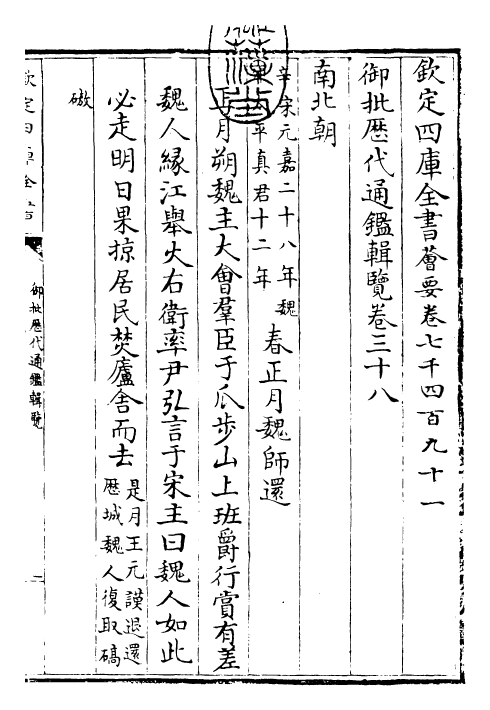 欽定四庫全書薈要卷七千四百九十一
御批歴代通鑑輯覽卷三十八
南北朝
辛
宋元嘉二十八年魏
平真君十二年
春正月魏師還
正月朔魏主大會羣臣于瓜步山上班爵行賞有差
魏人緣江舉火右衛率尹弘言于宋主曰魏人如此
必走明日果掠居民焚廬舍而去
是月王元謨退還
歴城魏人復取碻
磝
欽定四庫全書
御批歴代通鑑輯覽
一